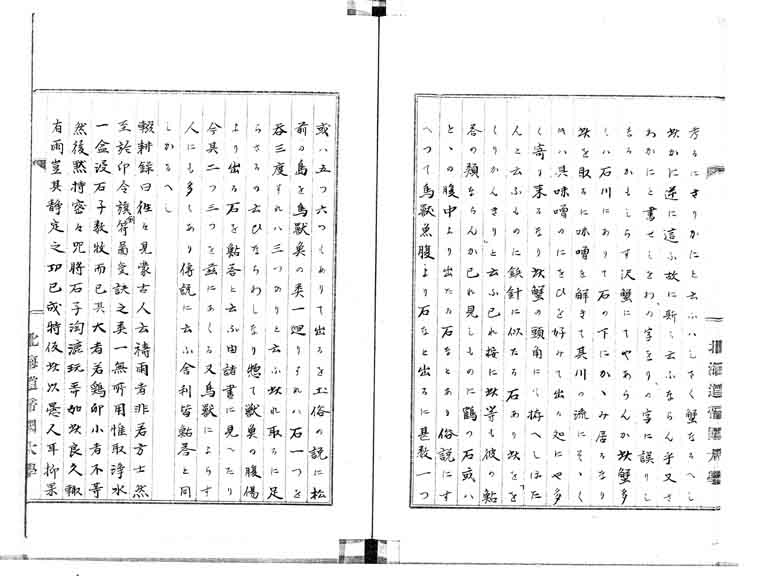 考るにさりかにと云ふハしさく蟹なるへし
此かに逆に這ふ故に斯く云ふならん乎又さ
わかにと書せしをわの字をりの字に誤りし
もろかもしらす沢蟹にてやあらんか此蟹多
くハ石川にありて石の下にかゝみ居るなり
此を取るに味噌を解きて其川の流にそゝく
時ハ其味噌のにをひを好みて出た処にや多
く寄り来るなり此蟹の頭角にて拵へしほた
んと云ふものに鉄針に似たる石あり此をを
くりかんきりと云ふ已れ按に此等も彼の鮎
荅の類ならんか已れ見しものに鶴の石或ハ
とゝの腹中より出たる石なとあり俗説にす
へつて鳥獣魚腹より石なと出るに甚数一つ
或ハ五つ六つくもありて出るを土俗の説に松
前の島を鳥獣奥の類一廻りすれハ石一つを
吞三度すれハ三つのりと云ふ此れ取るに足
らさるの云ひならわしなり惣て獣奥の腹傷
より出る石を鮎荅と云ふ由諸書に見へたり
今其二つ三つを茲にあくる又鳥獣によらす
人にも多くあり傳説に云ふ舎利皆鮎荅と同
しかるへし
輟耕録曰往々見蒙古人云禱雨者非若方士然
至於印令旗符劍罡変訣之类一無所用惟取浄水
一盆浸石子数枚而已其大者若鶏卯小者不等
然後黙持密々咒將石子淘漉玩弄如此良久輙
有雨豈其静定之功已成特仮此以愚人耳抑果
北海道帝国大學